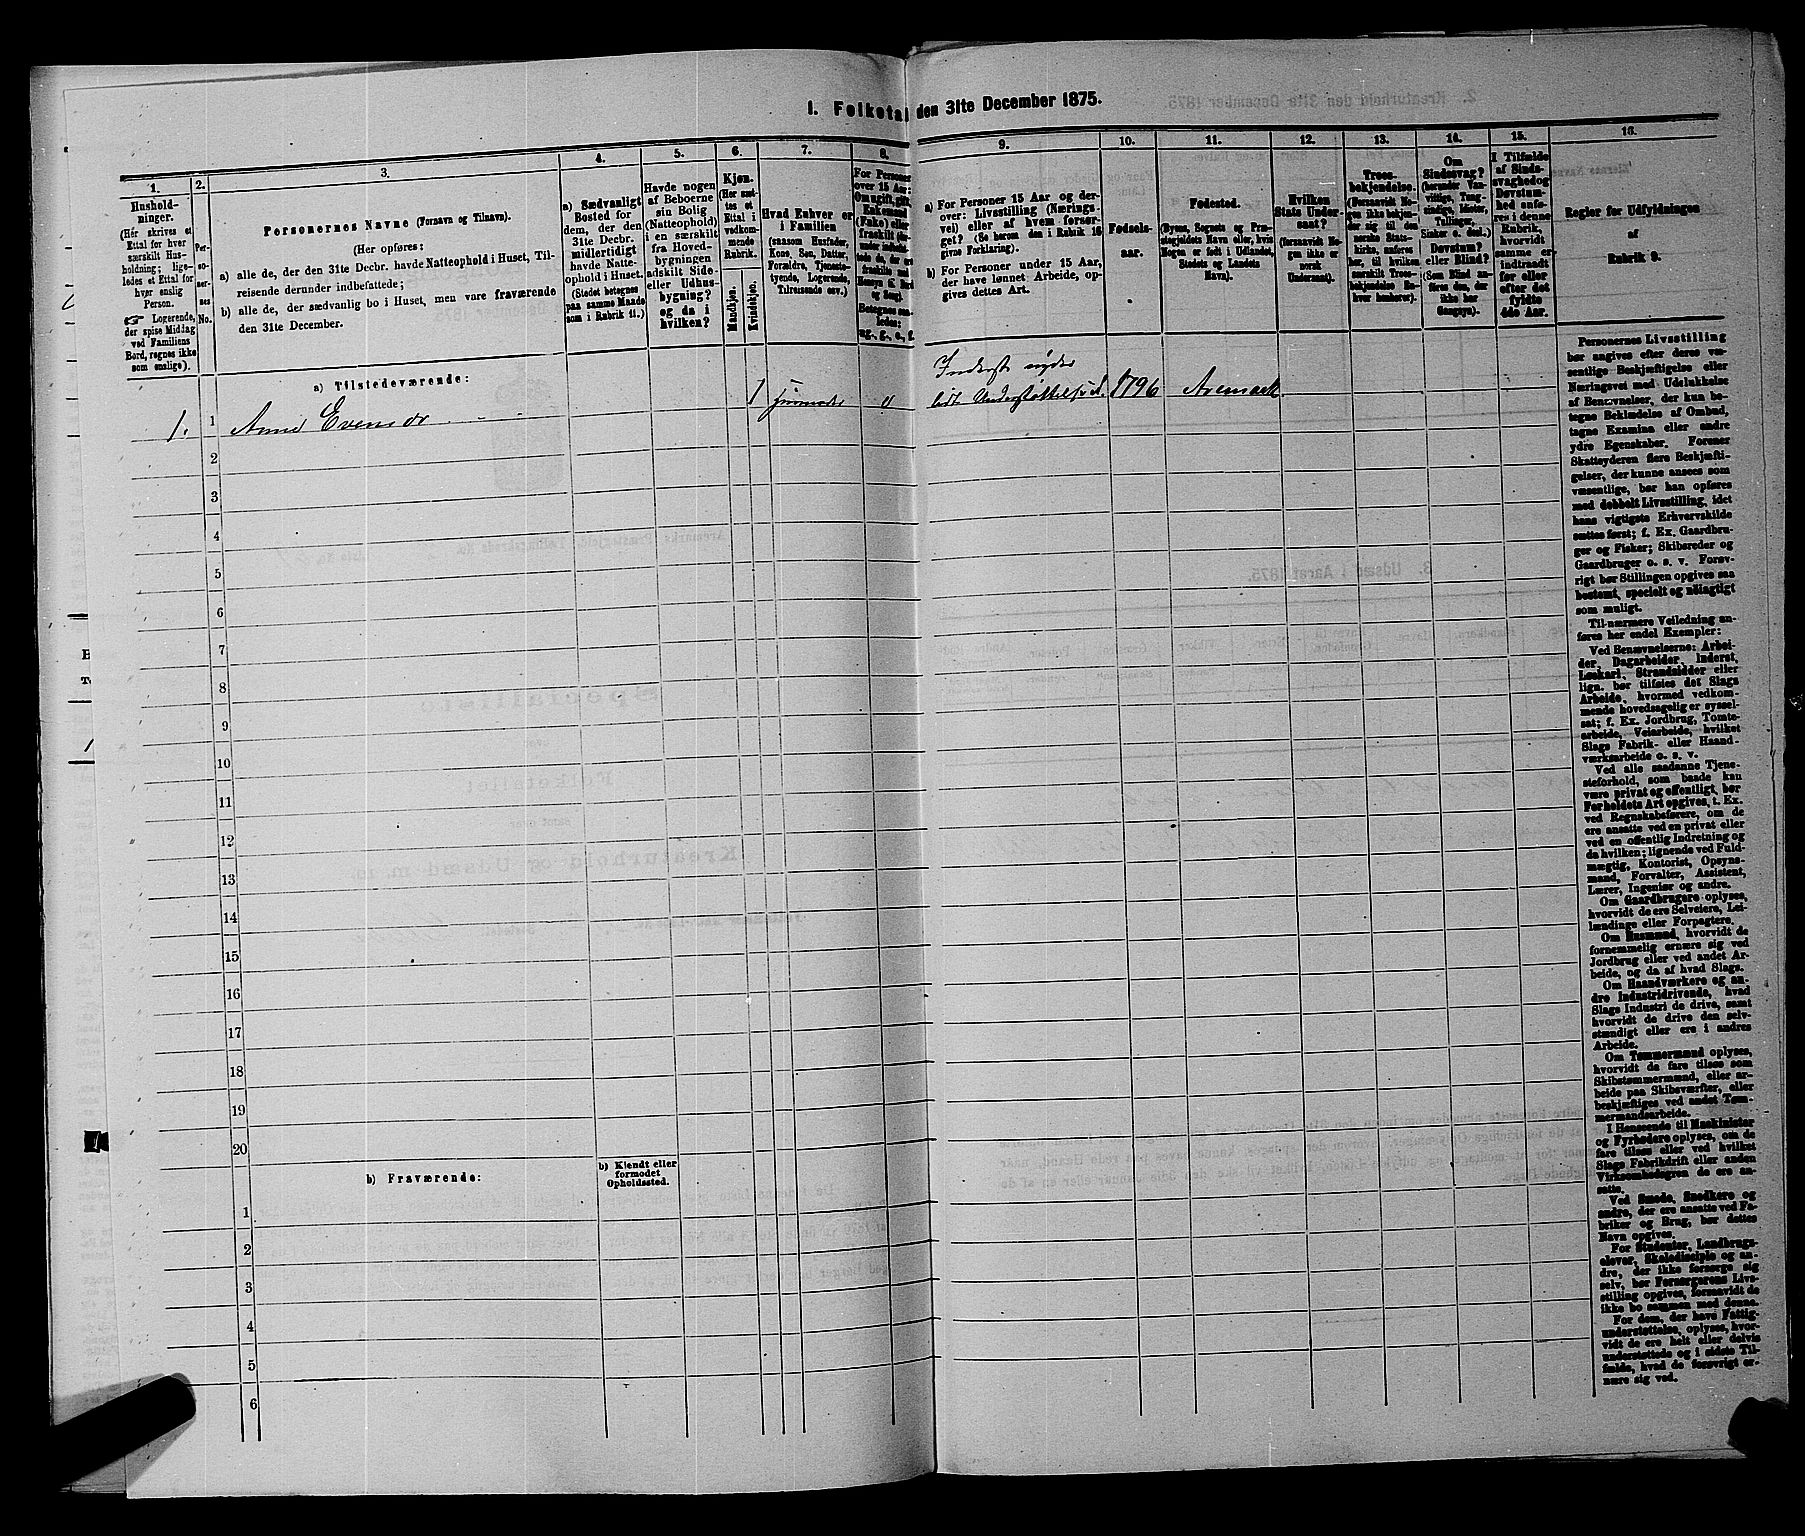 1. Folketal den 31te December 1875.
1. 2. 3. 4. 5. 6. 7. 8. 9. 10. 11. 12. 13. 14. 15. 16.
Hushold-
ninger.
(Her skrives et
Ettal for hver
særskilt Hus-
holdning; lige-
ledes et Ettal for
hver enslig
Person.
☞ Logerende,
der spise Middag
ved Familiens
Bord, regnes ikke
som enslige).
Per-
so-
ner-
nes
No.
Personernes Navne (Fornavn og Tilnavn).
(Her opføres:
a) alle de, der den 31te Decbr. havde Natteophold i Huset, Til-
reisende derunder indbefattede;
b) alle de, der sædvanlig bo i Huset, men vare fraværende
den 31te December.
a) Sædvanligt
Bosted for
dem, der den
31te Decbr.
midlertidigt
havde Natte-
ophold i Huset.
(Stedet betegnes
paa samme Maade
som i Rubrik 11.)
Havde nogen
af Beboerne
sin Bolig
(Natteophold)
i en særskilt
fra Hoved-
bygningen
adskilt Side-
eller Udhus-
bygning?
og da i
hvilken?
Kjøn.
(Her sæt-
tes et
Ettal i
vedkom-
mende
Rubrik.
Mandkjøn.
Kvindekjøn.
Hvad Enhver er
i Familien
(saasom Husfader,
Kone, Søn, Datter,
Forældre, Tjeneste-
tyende, Logerende,
Tilreisende osv.)
For Personer
over 15 Aar:
Om ugift, gift,
Enkemand
(Enke) eller
fraskilt
Betegnes saa-
ledes:
ug., g., e., f.
a) For Personer 15 Aar og der-
over: Livsstilling (Nærings-
vei) eller af hvem forsør-
get? (Se herom den i Rubrik 16
givne Forklaring).
b) For Personer under 15 Aar,
der have lønnet Arbeide, op-
gives dettes Art.
Fødsels-
aar.
Fødested.
(Byens, Sognets og Præ-
stegjeldets Navn eller, hvis
Nogen er født i Udlandet,
Stedets og Landets
Navn).
Hvilken
Stats Under-
saat?
(forsaavidt No-
gen ikke er
norsk
Undersaat).
Troes-
bekjendelse.
(Forsaavidt No-
gen ikke bekjen-
der sig til den
norske Stats-
kirke, anføres
her, til hvilken
særskilt Troes-
bekjendelse En-
hver henhører).
Om
Sindssvag?
Døvstum?
eller Blind?
(Som Blind an-
føres den, der
ikke har
Gangsyn).
I Tilfælde
af Sinds-
svaghed og
Døvstum-
hed anfø-
res i denne
Rubrik,
hvorvidt
samme er
indtraadt
før eller
efter det
fyldte
4de Aar.
Regler for Udfyldningen
af
Rubrik 9.
a) Tilstedeværende:
Inderst nyder
1. 1 Anne Evensdr 1 e lidt Understøttelse 1796 Aremark
2
3
4
5
6
7
8
9
10
11
12
13
14
15
16
17
18
19
20
b) Fraværende:
b) Kjendt eller
formodet
Opholdssted.
1
2
3
4
5
6
Personernes Livsstilling
bør angives efter deres væ-
sentlige Beskjæftigelse eller
Næringsvei med Udelukkelse
af Benævnelser, der kun be-
tegne Beklædelse af Ombud,
tagne Examina eller andre
ydre Egenskaber. Forener
Skatteyderen flere Beskjæfti-
gelser, der kunne ansees som
væsentlige, bør han opføres
med dobbelt Livsstilling, idet
hans vigtigste Erhvervskilde
sættes først; f. Ex. Gaardbru-
ger og Fisker; Skibsreder og
Gaardbruger o. s. v. Forøv-
rigt bør Stillingen opgives saa
bestemt, specielt og nøiagtigt
som muligt.
Til nærmere Veiledning an-
føres her endel Exempler:
Ved Benævnelserne: Arbei-
der, Dagarbeider, Inderst,
Løskarl, Strandsidder eller
lign. bør tilføies det Slags
Arbeide, hvormed vedkom-
mende hovedsagelig er syssel-
sat; f. Ex. Jordbrug, Tomte-
arbeide, Veiarbeide, hvilket
Slags Fabrik- eller Haand-
værksarbeide o. s. v.
Ved alle saadanne Tjene-
steforhold, som baade kan
være privat og offentligt, bør
Forholdets Art opgives, t. Ex.
ved Regnskabsførere, om de
ere ansatte ved en privat eller
ved en offentlig Indretning og
da hvilken; lignende ved Fuld-
mægtig, Kontorist, Opsyns-
mand, Forvalter, Assistent,
Lærer, Ingeniør og andre.
Om Gaardbrugere oplyses,
hvorvidt de ere Selveiere, Lei-
lændinge eller Forpagtere.
Om Husmænd, hvorvidt de
fornemmelig ernære sig ved
Jordbrug eller ved andet Ar-
beide, og da af hvad Slags.
Om Haandværkere og an-
dre Industridrivende, hvad
Slags Industri de drive, samt
hvorvidt de drive den selv-
stændigt eller ere i andres
Arbeide.
Om Tømmermænd oplyses,
hvorvidt de fare tilsøs som
Skibstømmermænd, eller ar-
beide paa Skibsværfter, eller
beskjæftiges ved andet Tøm-
mermandsarbeide.
I Henseende til Maskinister
og Fyrbødere oplyses, om de
fare tilsøs eller ved hvilket
Slags Fabrikdrift eller anden
Virksomhedsgren de ere an-
satte.
Ved Smede, Snedkere og
andre, der ere ansatte ved Fa-
briker og Brug, bør dettes
Navn opgives.
For Studenter, Landbrugs-
elever, Skoledisciple og an-
dre, der ikke forsørge sig
selv, bør Forsørgerens Livs-
stilling opgives, forsaavidt de
ikke bo sammen med denne.
For dem, der have Fattig-
understøttelse, oplyses, hvor-
vidt de ere helt eller delvis
understøttede og i sidste Til-
fælde, hvad de forøvrigt er-
nære sig ved.